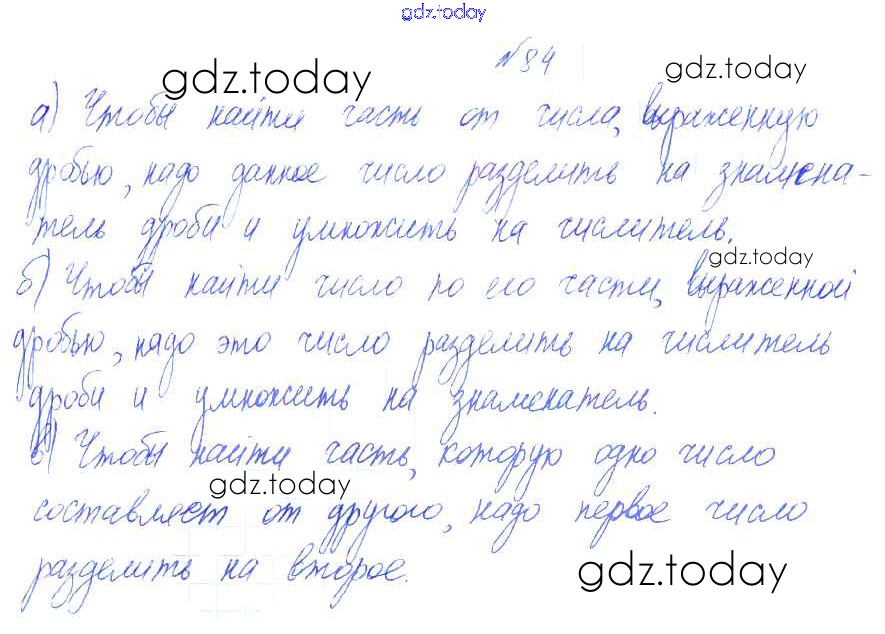 gdz.today
№84
gdz.today gdz.today
а) Чтобы найти часть от числа, выраженную
дробью, надо данное число разделить на знамена-
тель дроби и умножить на числитель.
gdz.today
б) Чтобы найти число по его части, выраженной
дробью, надо это число разделить на числитель
дроби и умножить на знаменатель.
в) Чтобы найти часть, которую одно число
gdz.today
составляет от другого, надо первое число
разделить на второе.
gdz.today